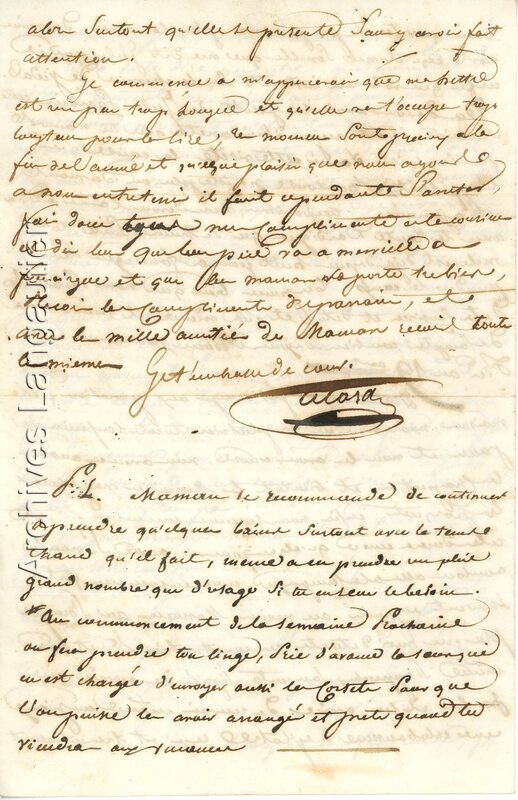 alors surtout qu'elle se presente sans y avoir fait
attention.
Je commence a m'appercevoir que ma lettre
est un peu trop longue et qu'elle ne t'occupe trop
longtem pour la lire, les momens sont precieux a la
fin de l'année et quelque plaisir que nous ayons
a nous entretenir il faut cependant s'arreter,
fais donc mes complimente a ta cousine
et dis lui que son pere va a merveille a
et que sa maman se porte tres bien,
Reçois les complimente de
avec le mille amitié de Maman recois toute
les miennes Je t'embrasse de coeur.
P.S. Maman te recommande de continuer
a prendre quelques bains surtout avec le tems
chaud qu'il fait, meme a en prendre un plus
grand nombre que d'usage si tu en sens le besoin.
Au commencement de la semaine prochaine
on fera prendre ton linge, prie d'avance la soeur qui
en est chargée d'envoyer aussi les corsets pour que
l'on puisse les avoir arrangé et prets quand tu
viendra aux vacances
Archives Langaulier